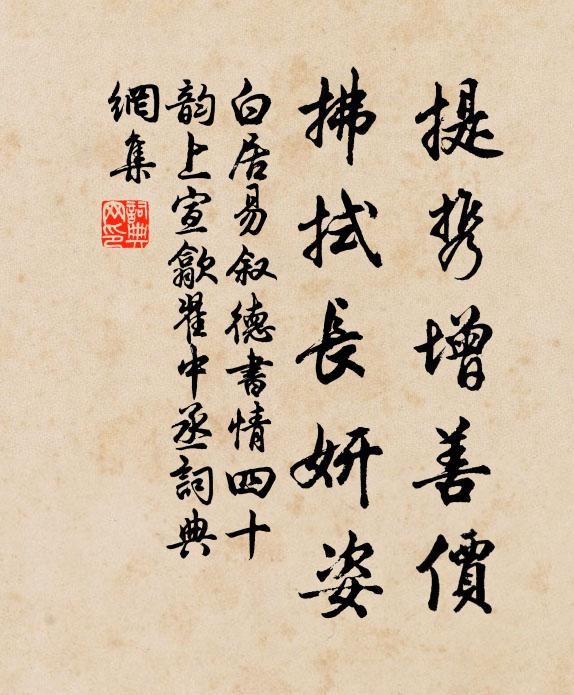 提携增善價
拂拭長妍姿
白居易叙德書情四十
韵上宣歙翟中丞詞典
網集
詞典
网印